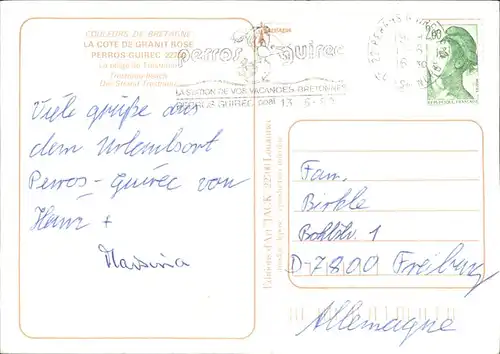 COULEURS DE BRETAGNE
LA COTE DE GRANIT ROSE
PERROS-GUIREC 22700
La plage de Trestraou
Trestraou Beach
Der Strand Trestraou
perros guirec
LA STATION DE VOS VACANCES BRETONNES
PERROS GUIREC 13
2,00
REPUBLIQUE FRANCAISE
Viele Grüße aus
dem Urlaubsort
Perros-Guirec von
Heinz +
Editions d'Art "JACK" 22700 Louannec
Fam.
Birkle
1
D-7800 Freiburg
Allemagne